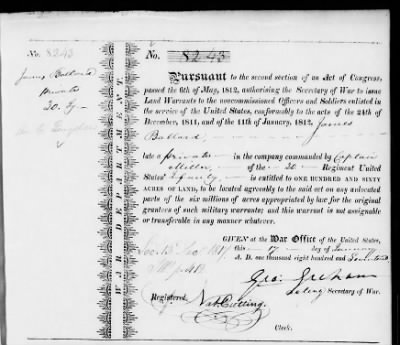 No. 8243
James Ballard
Private
20. Ty
WAR DEPARTMENT.
No. 8243
Pursuant to the second section of an Act of Congress,
passed the 6th of May, 1812, authorising the Secretary of War to issue
Land Warrants to the noncommissioned Officers and Soldiers enlisted in
the service of the United States, conformably to the acts of the 24th of
December, 1811, and of the 11th of January, 1812, James
Ballard
late a private in the company commanded by Captain
Miller of the 20 Regiment United
States' Infantry is entitled to ONE HUNDRED AND SIXTY
ACRES OF LAND, to be located agreeably to the said act on any unlocated
parts of the six millions of acres appropriated by law for the original
grantees of such military warrants; and this warrant is not assignable
or transferable in any manner whatever.
GIVEN at the War Office of the United States,
this 7 day of January
A. D. one thousand eight hundred and Seventeen
Geo: Graham
Acting Secretary of War.
Registered,
Nat. Cutting,
Clerk.